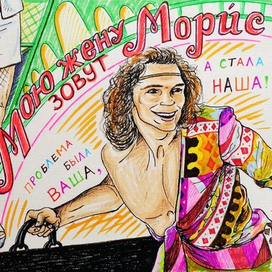 Мою жену
зовут
Мори́с
А СТАЛА
НАША!
ПРОБЛЕМА
БЫЛА
ВАША,